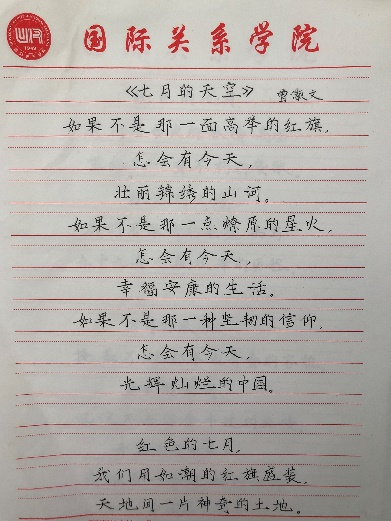 国际关系学院
1949
《七月的天空》 曾徽文
如果不是那一面高举的红旗,
怎会有今天,
壮丽锦绣的山河。
如果不是那一点燎原的星火,
怎会有今天,
幸福安康的生活。
如果不是那一种坚韧的信仰,
怎会有今天,
光辉灿烂的中国。
红色的七月,
我们用如潮的红旗盛装,
天地间一片神奇的土地。